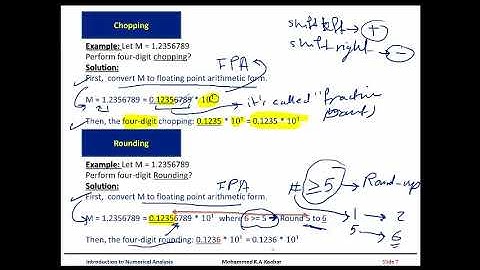 Chopping
Example: Let M = 1.2356789
Perform four-digit chopping?
Solution:
First, convert M to floating point arithmetic form.
M = 1.2356789 = 0.12356789 * 10¹
Then, the four-digit chopping: 0.1235 * 10¹ = 0.1235 * 10¹
shift left → +
shift right → −
FPA
it's called "fraction
Rounding
Example: Let M = 1.2356789
Perform four-digit Rounding?
Solution:
First, convert M to floating point arithmetic form.
M = 1.2356789 = 0.12356789 * 10¹ where 6 >= 5 → Round 5 to 6
Then, the four-digit rounding: 0.1236 * 10¹ = 0.1236 * 10¹
FPA
# ≥ 5 → Round-up
1 → 2
5 → 6
Introduction to Numerical Analysis
Mohammed R.A Koobar
Slide 7